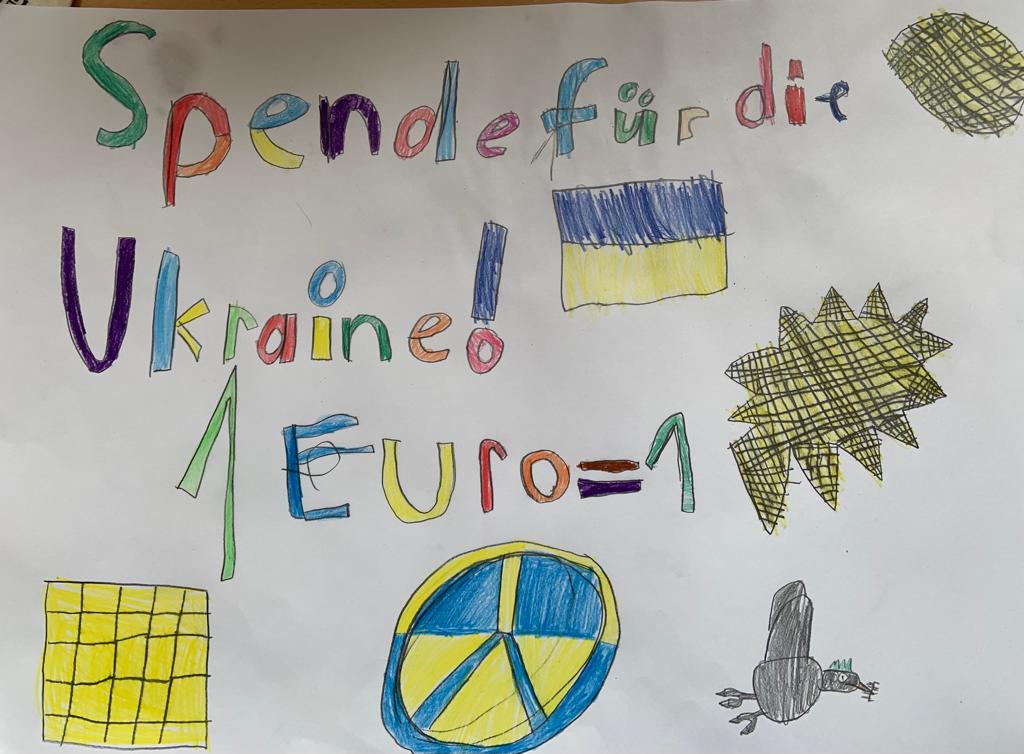 Spende für die
Ukraine!
1 Euro=1